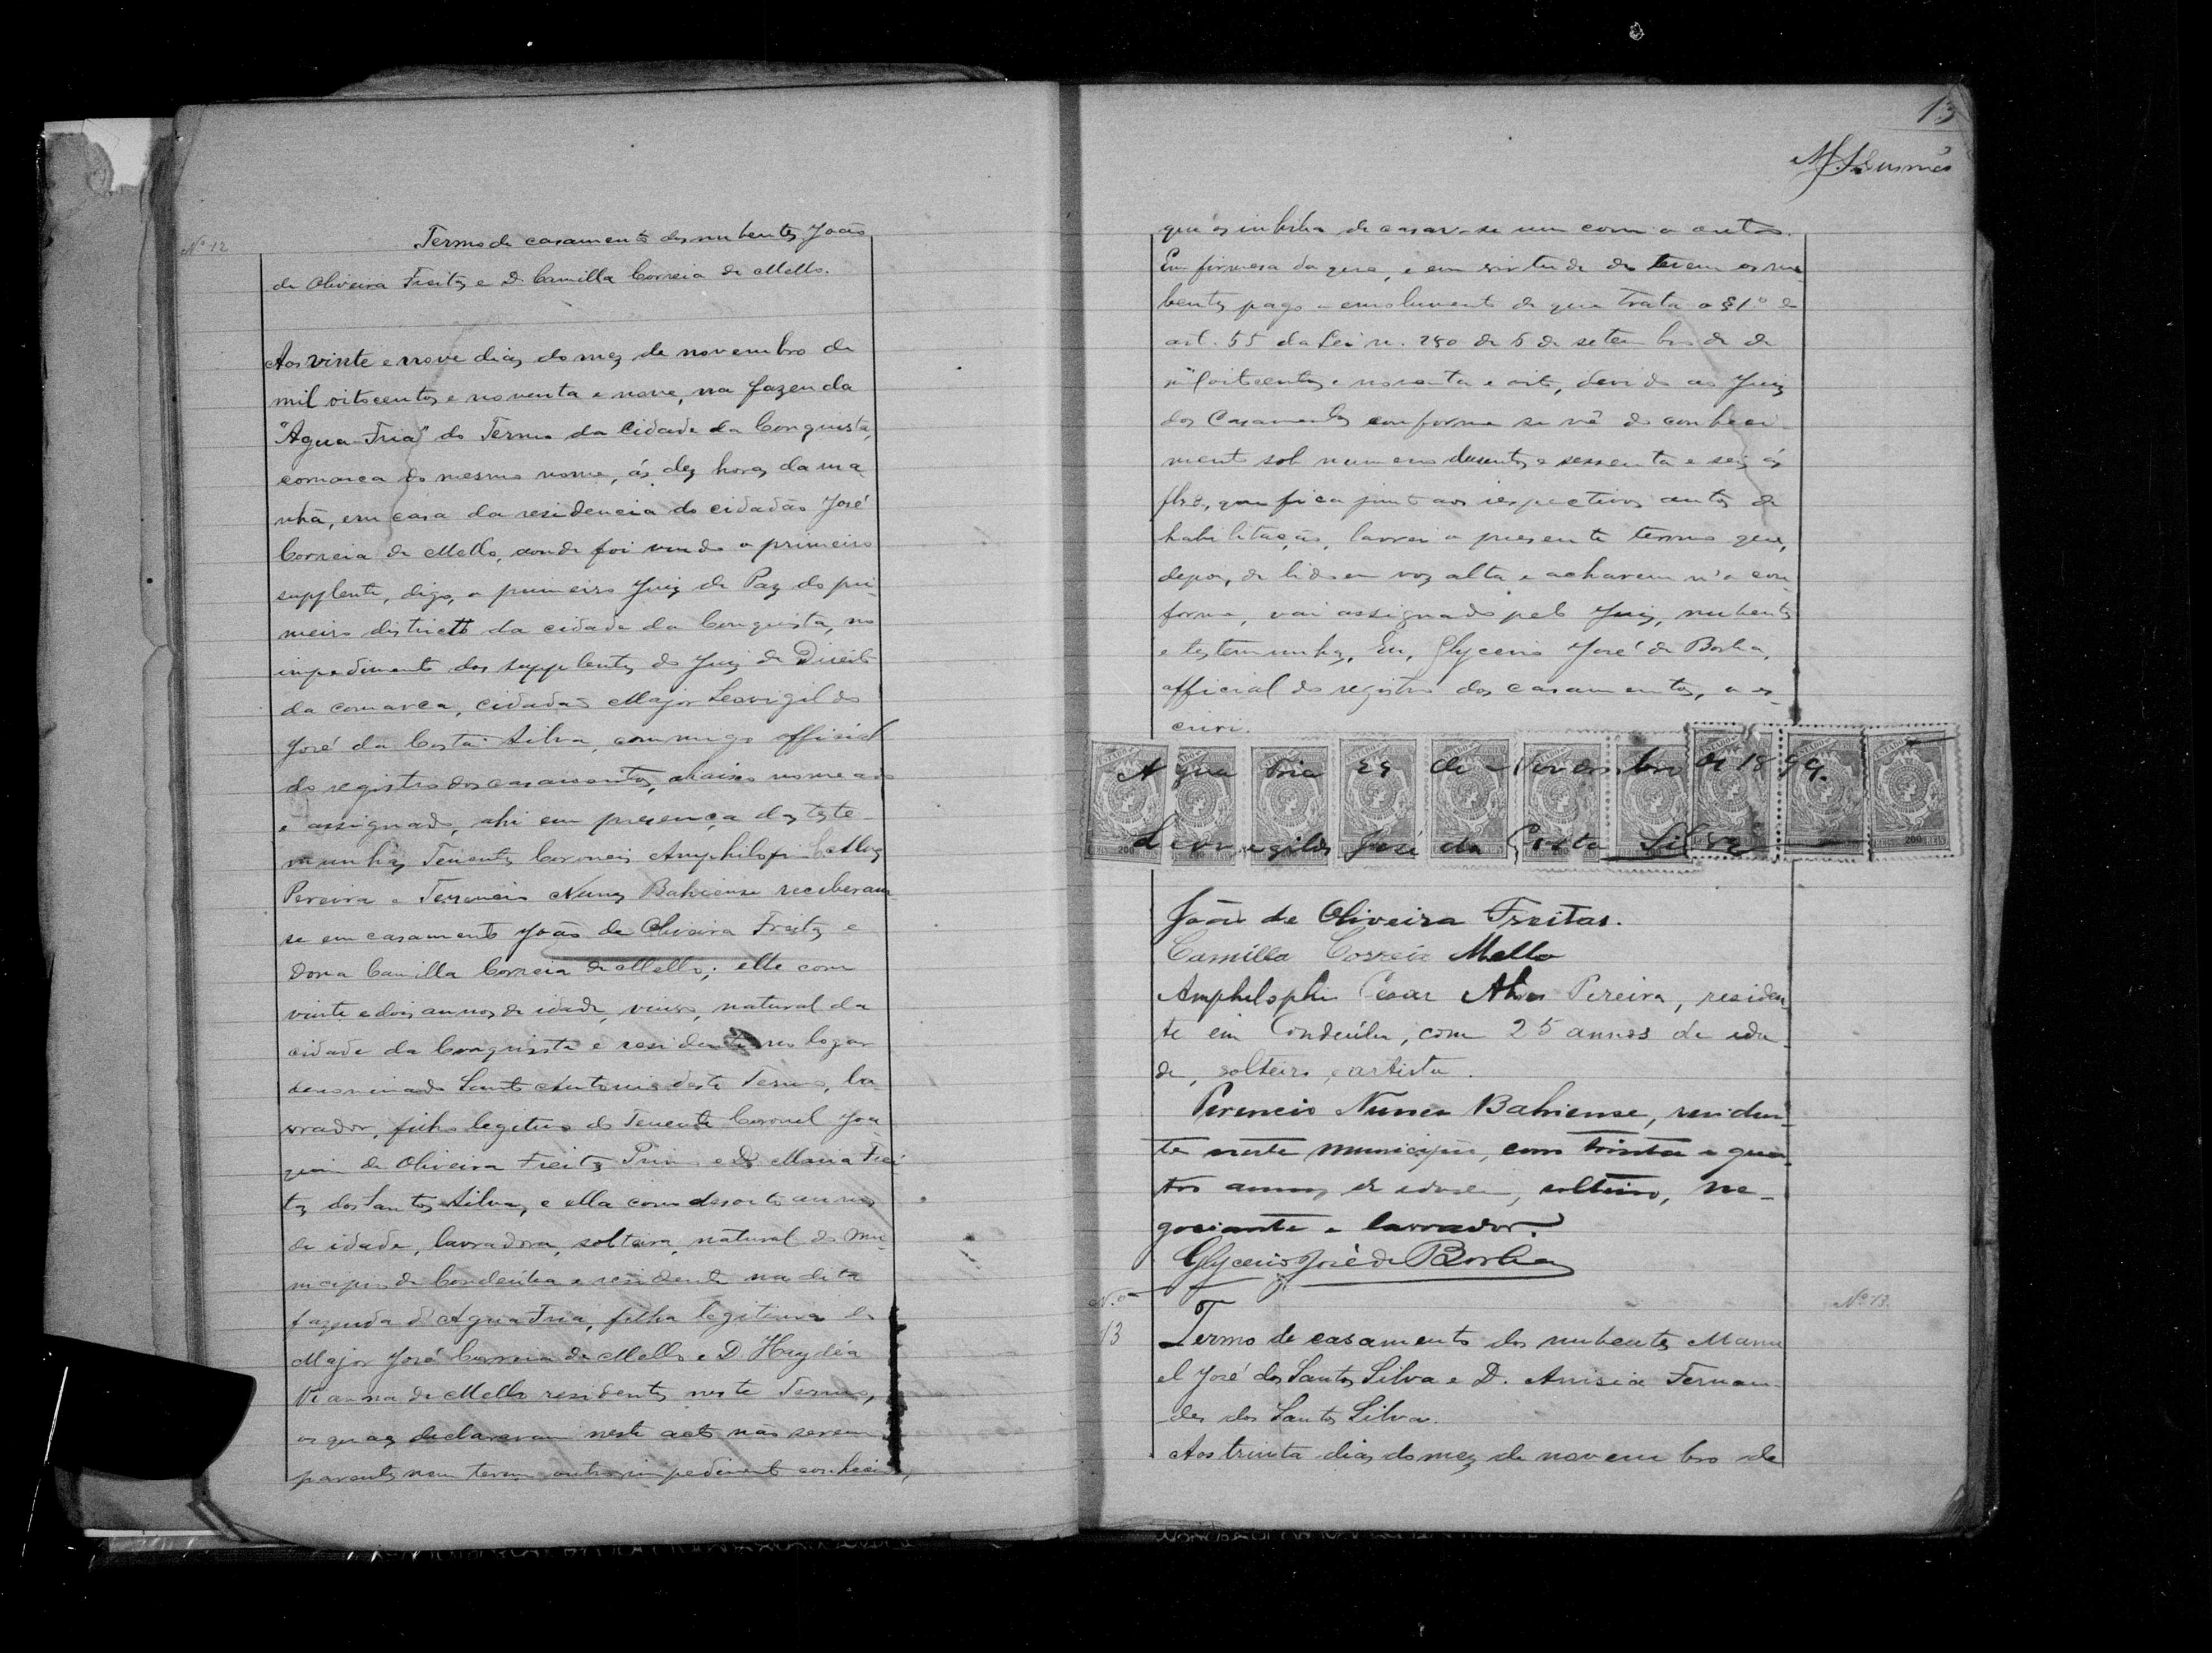 Nº 12
Termo de casamento dos nubentes João
de Oliveira Freitas e D. Camilla Correia de Mello.
Aos vinte e nove dias do mez de novembro de
mil oitocentos e noventa e nove, na fazenda
"Agua-Fria" do Termo da Cidade da Conquista,
comarca do mesmo nome, ás dez horas da ma
nhã, em casa da residencia do cidadão José
Correia de Mello, aonde foi vindo o primeiro
supplente, digo, o primeiro Juiz de Paz do pri-
meiro districto da cidade da Conquista, no
impedimento dos supplentes do Juiz de Direito
da comarca, cidadão Major Leovigildo
José da Costa Silva, commigo official
do registro dos casamentos, abaixo nomeado
e assignado, ahi em presença das teste-
munhas Tenentes Coroneis Amphilophio Alves
Pereira e Terencio Nunes Bahiense receberam
se em casamento João de Oliveira Freitas e
Dona Camilla Correia de Mello; elle com
vinte e dois annos de idade, viuvo, natural da
cidade da Conquista e residente no logar
denominado Santo Antonio deste Termo, la
vrador, filho legitimo do Tenente Coronel Joa
quim de Oliveira Freitas Primo e D. Maria Frei
tas dos Santos Silva, e ella com desoito annos
de idade, lavradora, solteira, natural do Mu-
nicipio de Condeúba e residente na dita
fazenda d'Agua Fria, filha legitima do
Major José Correia de Mello e D. Haydéa
Vianna de Mello residentes neste Termo,
os quaes declararam neste acto não serem
parentes nem terem outro impedimento conhecido,
13
que os inhiba de casar-se um com o outro.
Em firmesa do que, e em virtude de terem os nu
bentes pago o emolumento de que trata o § 1º do
art. 55 da Lei n. 280 de 5 de setembro de de
mil oitocentos e noventa e oito, devido ao Juiz
dos Casamentos conforme se vê do conheci-
mento sob numero dusentos e sessenta e seis ás
fls 2, que fica junto aos respectivos autos de
habilitação, lavrei o presente termo que,
depois de lido em voz alta e acharem n'o con
forme, vai assignado pelo Juiz, nubentes
e testemunhas. Eu, Glycerio José de Borba,
official do registro dos casamentos, o es-
crivi.
Agua Fria 29 de Novembro de 1899.
Leovigildo José da Costa Silva
João de Oliveira Freitas.
Camilla Correia Mello
Amphilophio Cesar Alves Pereira, residen-
te em Condeúba, com 25 annos de ida-
de, solteiro, artista.
Terencio Nunes Bahiense, residen-
te neste municipio, com trinta e qua-
tro annos de idade, solteiro, ne-
gociante e lavrador.
Glycerio José de Borba
N.º
13
Nº 13.
Termo de casamento dos nubentes Manu
el José dos Santos Silva e D. Anisia Fernan-
des dos Santos Silva.
Aos trinta dias do mez de novembro de